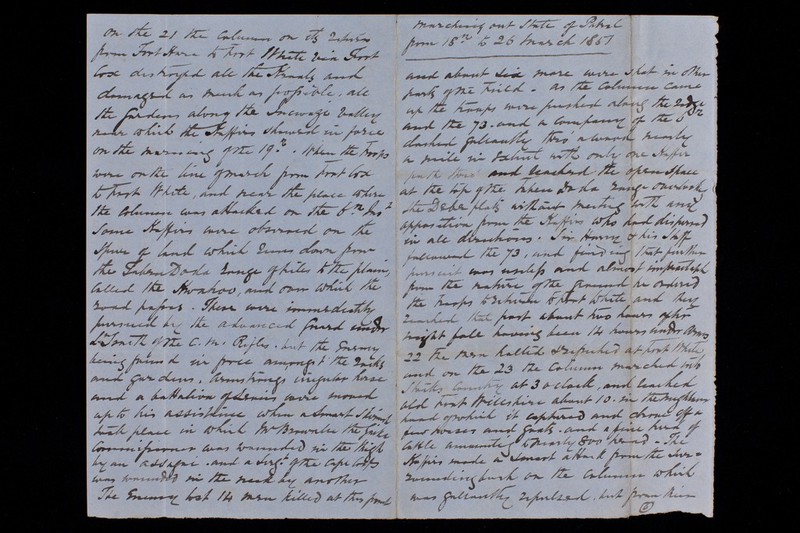 on the 21 the Column on its return
from Fort Hare to Fort White via Fort
Cox destroyed all the Kraals and
damaged as much as possible, all
the Gardens along the valley
near which the Kaffirs showed in force
on the morning of the 19th. When the Troops
were on the line of march from Fort Cox
to Fort White, and near the place where
the Column was attacked on the 6th Inst
Some Kaffirs were observed on the
Spur of land which runs down from
the Tabu Doda range of hills to the plain,
called the and over which the
road passes. These were immediately
pursued by the advanced Guard under
Lt Smith of the C. M. Rifles. but the Enemy
being found in force amongst the
and gardens. Armstrongs irregular horse
and a battalion of were moved
up to his assistance when a Smart Skirmish
took place in which Mr Brownlee the
Commissioner was wounded in the thigh
by an assagai. and a Sergt of the Cape Corps
was wounded in the neck by another
The Enemy lost 14 men killed at this point
Marching out State of Patrol
from 18th to 26 March 1851
and about six more were shot in other
parts of the field. as the Column came
up the troops were pushed along the ridge
and the 73. and a company of the 6th
dashed gallantly thro' a wood nearly
a mile in extent with only one Kaffir
path thro' and reached the open space
at the top of the Tabu Doda range overlook
the flats without meeting with any
opposition from the Kaffirs who had dispersed
in all directions. Sir Harry & his Staff
followed the 73, and finding that further
pursuit was useless and almost impracticable
from the nature of the ground he ordered
the troops to return to Fort White and they
reached that post about two hours after
night fall having been 14 hours under Arms
22 the men halted & refreshed at Fort White,
and on the 23 the Column marched into
Country at 3 o'clock, and reached
old Fort Willshire about 10. in the neighbour
hood of which it captured and drove off a
few Horses and Goats. and a fine herd of
Cattle amounting to nearly 800 head. The
Kaffirs made a Smart attack from the Sur=
rounding bush on the Column which
was gallantly repulsed. but from